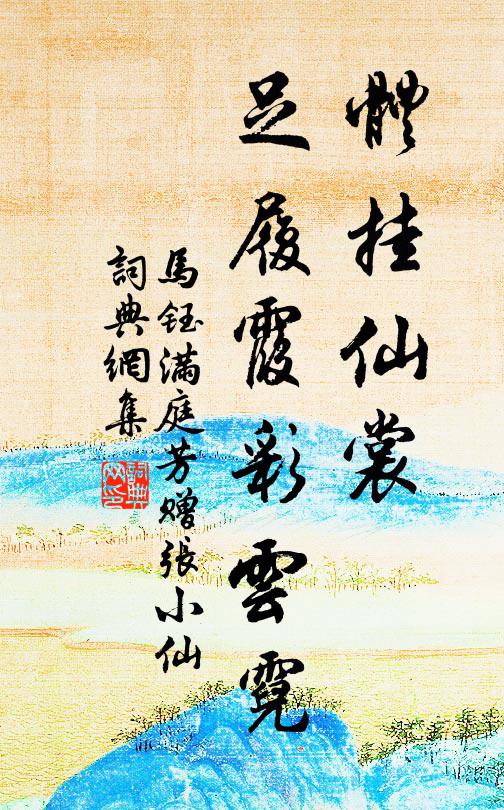 體挂仙裳
足履霞彩雲霓
馬鈺滿庭芳贈張小仙
詞典網集